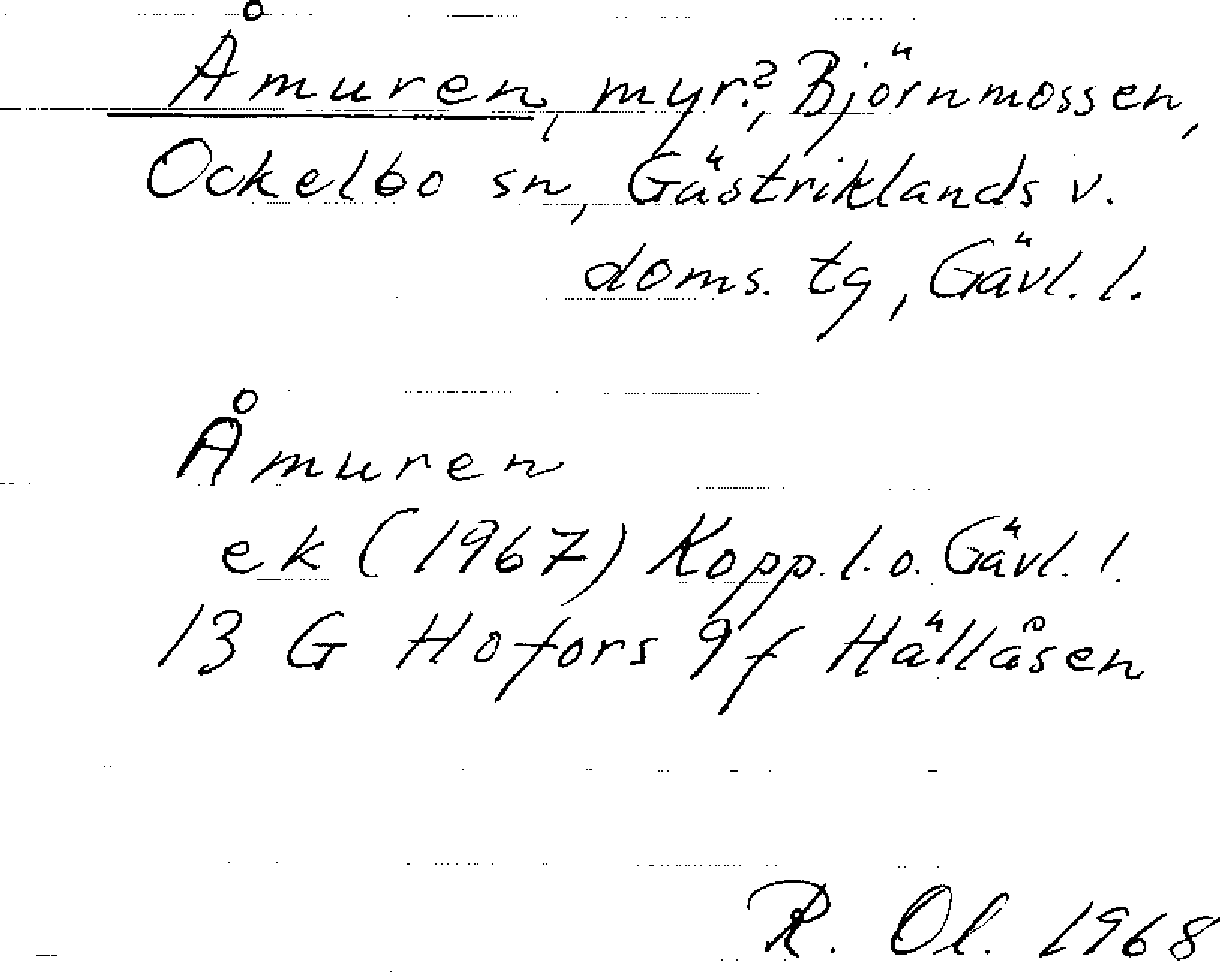 Åmuren, myr?, Björnmossen,
Ockelbo sn, Gästriklands v.
doms. tg, Gävl. l.
Åmuren
ek (1967) Kopp. l. o. Gävl. l.
13 G Hofors 9 f Hällåsen
R. Ol. 1968